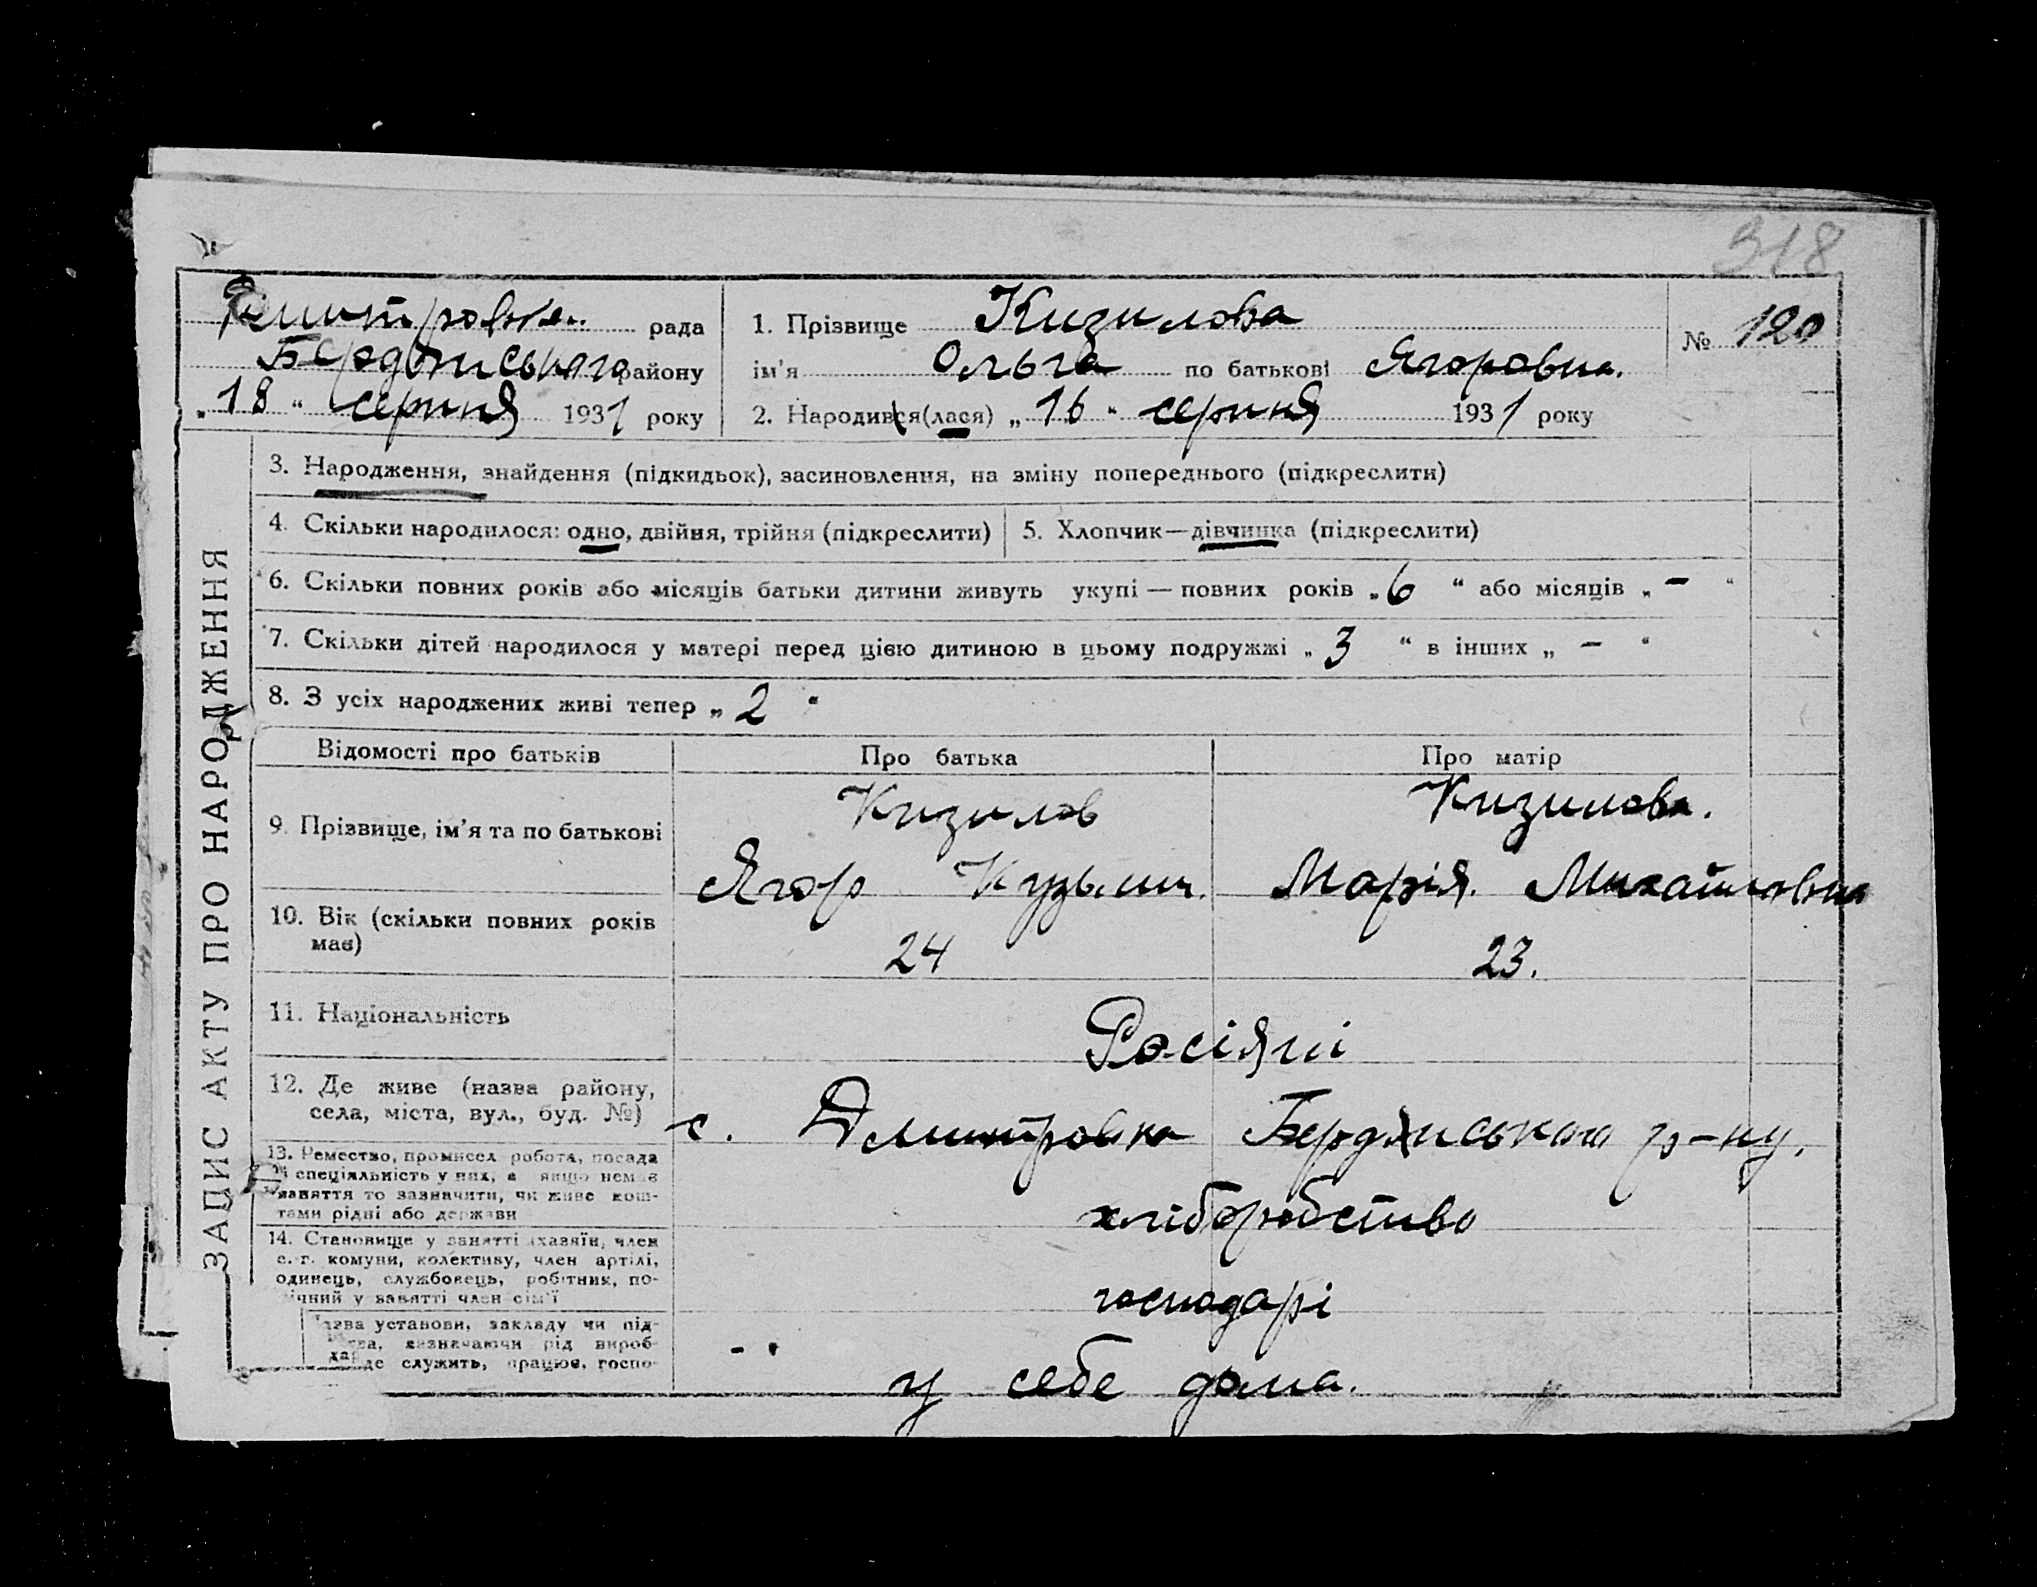 318
Дмитровка рада
Бердянського району
„18“ серпня 1931 року
1. Прізвище Кизилова
№ 120
ім'я Ольга по батькові Ягоровна.
2. Народився(лася) „16“ серпня 1931 року
ЗАПИС АКТУ ПРО НАРОДЖЕННЯ
3. Народження, знайдення (підкидьок), засиновлення, на зміну попереднього (підкреслити)
4. Скільки народилося: одно, двійня, трійня (підкреслити)
5. Хлопчик—дівчинка (підкреслити)
6. Скільки повних років або місяців батьки дитини живуть укупі — повних років „6“ або місяців „–“
7. Скільки дітей народилося у матері перед цією дитиною в цьому подружжі „3“ в інших „–“
8. З усіх народжених живі тепер „2“
Відомості про батьків
Про батька
Про матір
9. Прізвище, ім'я та по батькові
Кизилов
Ягор Кузьмич.
Кизилова.
Марія. Михайловна
10. Вік (скільки повних років
має)
24
23.
11. Національність
Росіяні
12. Де живе (назва району,
села, міста, вул., буд. №)
с. Дмитровка Бердянського р-ну.
13. Ремество, промисел робота, посада
спеціяльність у них, а якщо немає
заняття то зазначити, чи живе кош-
тами рідні або держави
хліборобство
14. Становище у занятті (хазяїн, член
с.-г. комуни, колективу, член артілі,
одинець, службовець, робітник, по-
мічний у занятті член сім'ї
господарі
установи, закладу чи під-
зазначаючи рід вироб-
де служить, працює, госпо-
у себе дома.